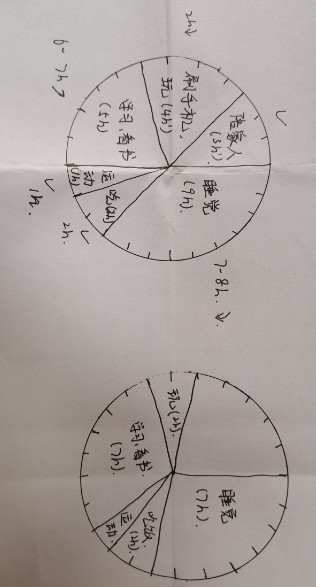 2h↓
6-7h↗
刷手机、
玩(4h)
陪家人
(3h)
✓
学习、看书
(5h)
睡觉
(9h).
运
动
(1h)
吃(2h)
1h.
2h.
✓
7-8h.↓
玩(2h).
学习、看书.
(7h).
睡觉
(7h).
吃饭.
(2h)
运
动.